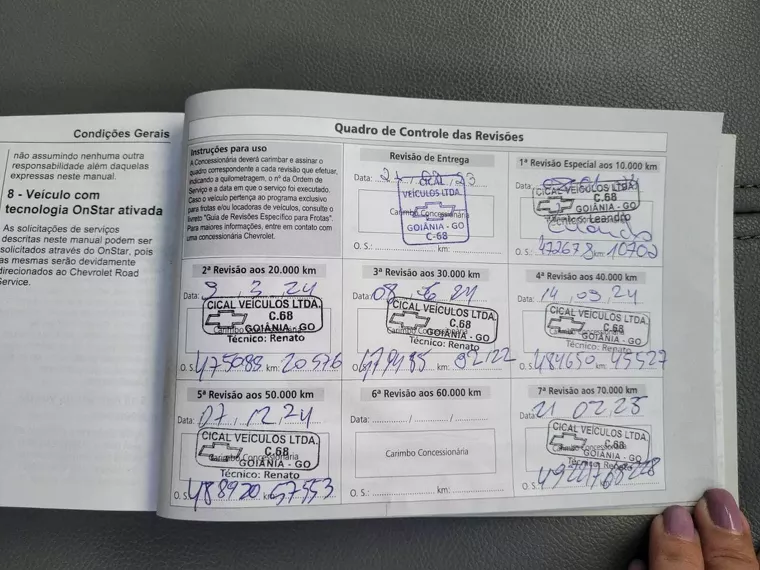 Condições Gerais
não assumindo nenhuma outra
responsabilidade além daquelas
expressas neste manual.
8 - Veículo com
tecnologia OnStar ativada
As solicitações de serviços
descritas neste manual podem ser
solicitados através do OnStar, pois
as mesmas serão devidamente
direcionados ao Chevrolet Road
Service.
Quadro de Controle das Revisões
Instruções para uso
A Concessionária deverá carimbar e assinar o
quadro correspondente a cada revisão que efetuar,
indicando a quilometragem, o nº da Ordem de
Serviço e a data em que o serviço foi executado.
Caso o veículo pertença ao programa exclusivo
para frotas e/ou locadoras de veículos, consulte o
livreto "Guia de Revisões Específico para Frotas".
Para maiores informações, entre em contato com
uma concessionária Chevrolet.
Revisão de Entrega
Data:
CICAL
VEÍCULOS LTDA.
Carimbo Concessionária
GOIÂNIA - GO
C-68
O. S.: km:
1ª Revisão Especial aos 10.000 km
Data:
CICAL VEÍCULOS LTDA.
C.68
GOIÂNIA - GO
Técnico: Leandro
O. S.: 472678 km: 10700
2ª Revisão aos 20.000 km
Data: 9 3 24
CICAL VEÍCULOS LTDA.
C.68
GOIÂNIA - GO
Técnico: Renato
O. S.: 475083 km: 20576
3ª Revisão aos 30.000 km
Data: 08 6 24
CICAL VEÍCULOS LTDA.
C.68
GOIÂNIA - GO
Técnico: Renato
O. S.: km:
4ª Revisão aos 40.000 km
Data: 14 09 24
CICAL VEÍCULOS LTDA.
C.68
GOIÂNIA - GO
Técnico: Renato
O. S.: 484650 km: 45527
5ª Revisão aos 50.000 km
Data: 07 12 24
CICAL VEÍCULOS LTDA.
C.68
Carimbo Concessionária
GOIÂNIA - GO
Técnico: Renato
O. S.: 488920 km: 57553
6ª Revisão aos 60.000 km
Data: / /
Carimbo Concessionária
O. S.: km:
7ª Revisão aos 70.000 km
Data: 21 02 25
CICAL VEÍCULOS LTDA.
C.68
GOIÂNIA - GO
Técnico: Renato
O. S.: